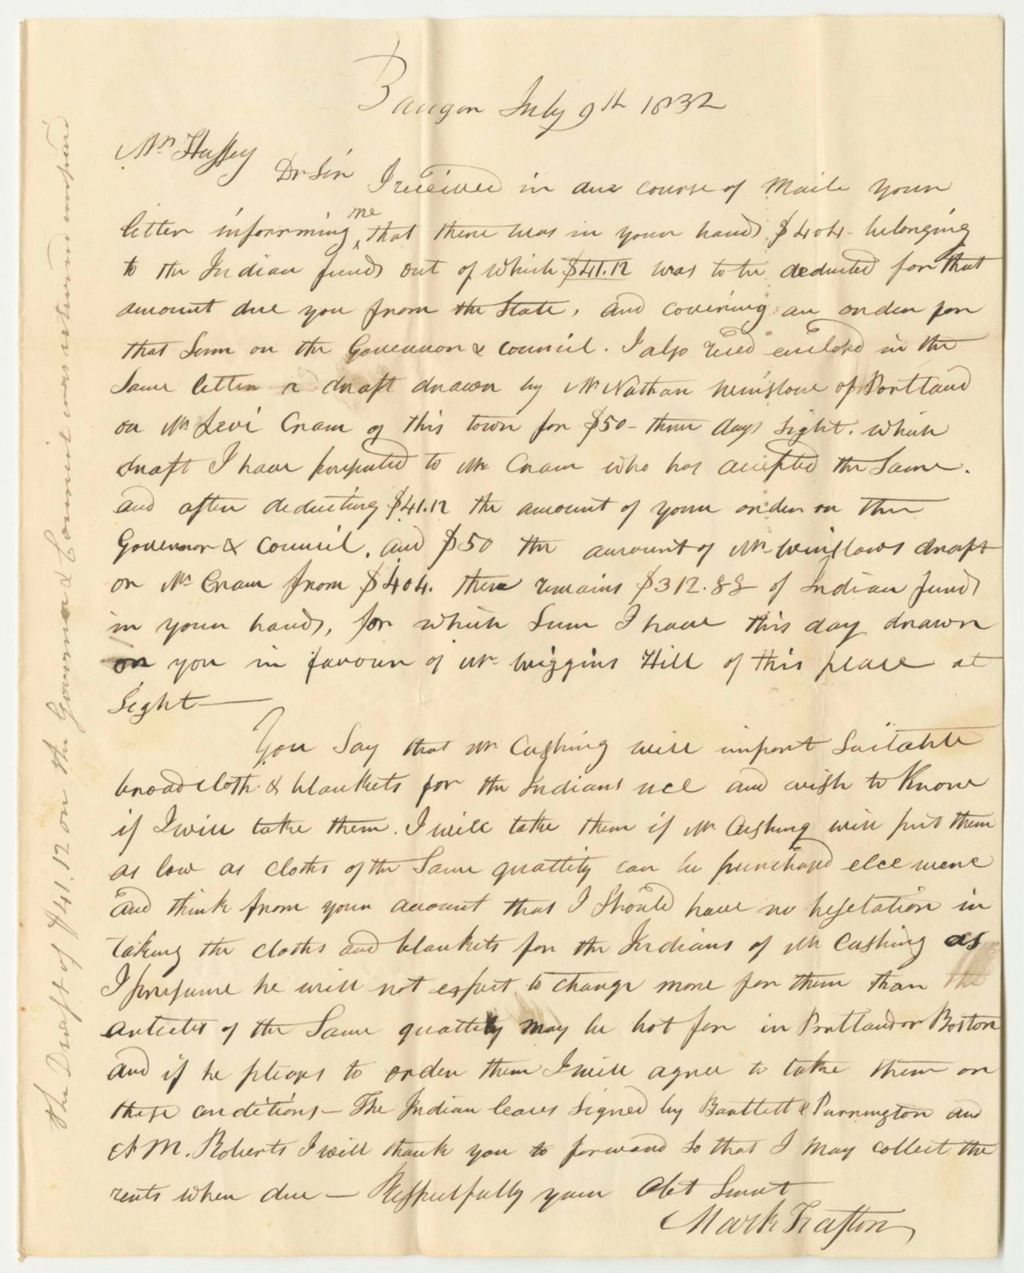 Bangor July 9th 1832
Mr Hussey
Dr Sir I received in due course of Maile your
letter informing me that there was in your hands $404 - belonging
to the Indian funds out of which $41.12 was to be deducted for that
amount due you from the State, and covering an order for
that Sum on the Governor & Council. I also recd enclosd in the
Same letter a draft drawn by Mr Nathan Winslow of Portland
on Mr Levi Cram of this town for $50 - three days sight. which
draft I have presented to Mr Cram who has accepted the Same.
and after deducting $41.12 the amount of your order on the
Governor & Council, and $50 the amount of Mr Winslows draft
on Mr Cram from $404. there remains $312.88 of Indian funds
in your hands, for which Sum I have this day drawn
on you in favour of Mr Wiggins Hill of this place at
Sight —
You Say that Mr Cushing will import Suitable
broadcloth & blankets for the Indians use and wish to know
if I will take them. I will take them if Mr Cushing will put them
as low as cloths of the Same quallity can be purchased elce were
and think from your account that I Should have no hesitation in
taking the cloths and blankets for the Indians of Mr Cushing as
I presume he will not expect to charge more for them than the
articles of the Same quallity may be bot for in Portland or Boston
and if he pleases to order them I will agree to take them on
these conditions - The Indian leases Signed by Bartlett & Purrington and
A M. Roberts I will thank you to forward So that I may collect the
rents when due — Respectfully your Obt Servt
Mark Trafton
The Draft of $41.12 on the Governor & Council was returned